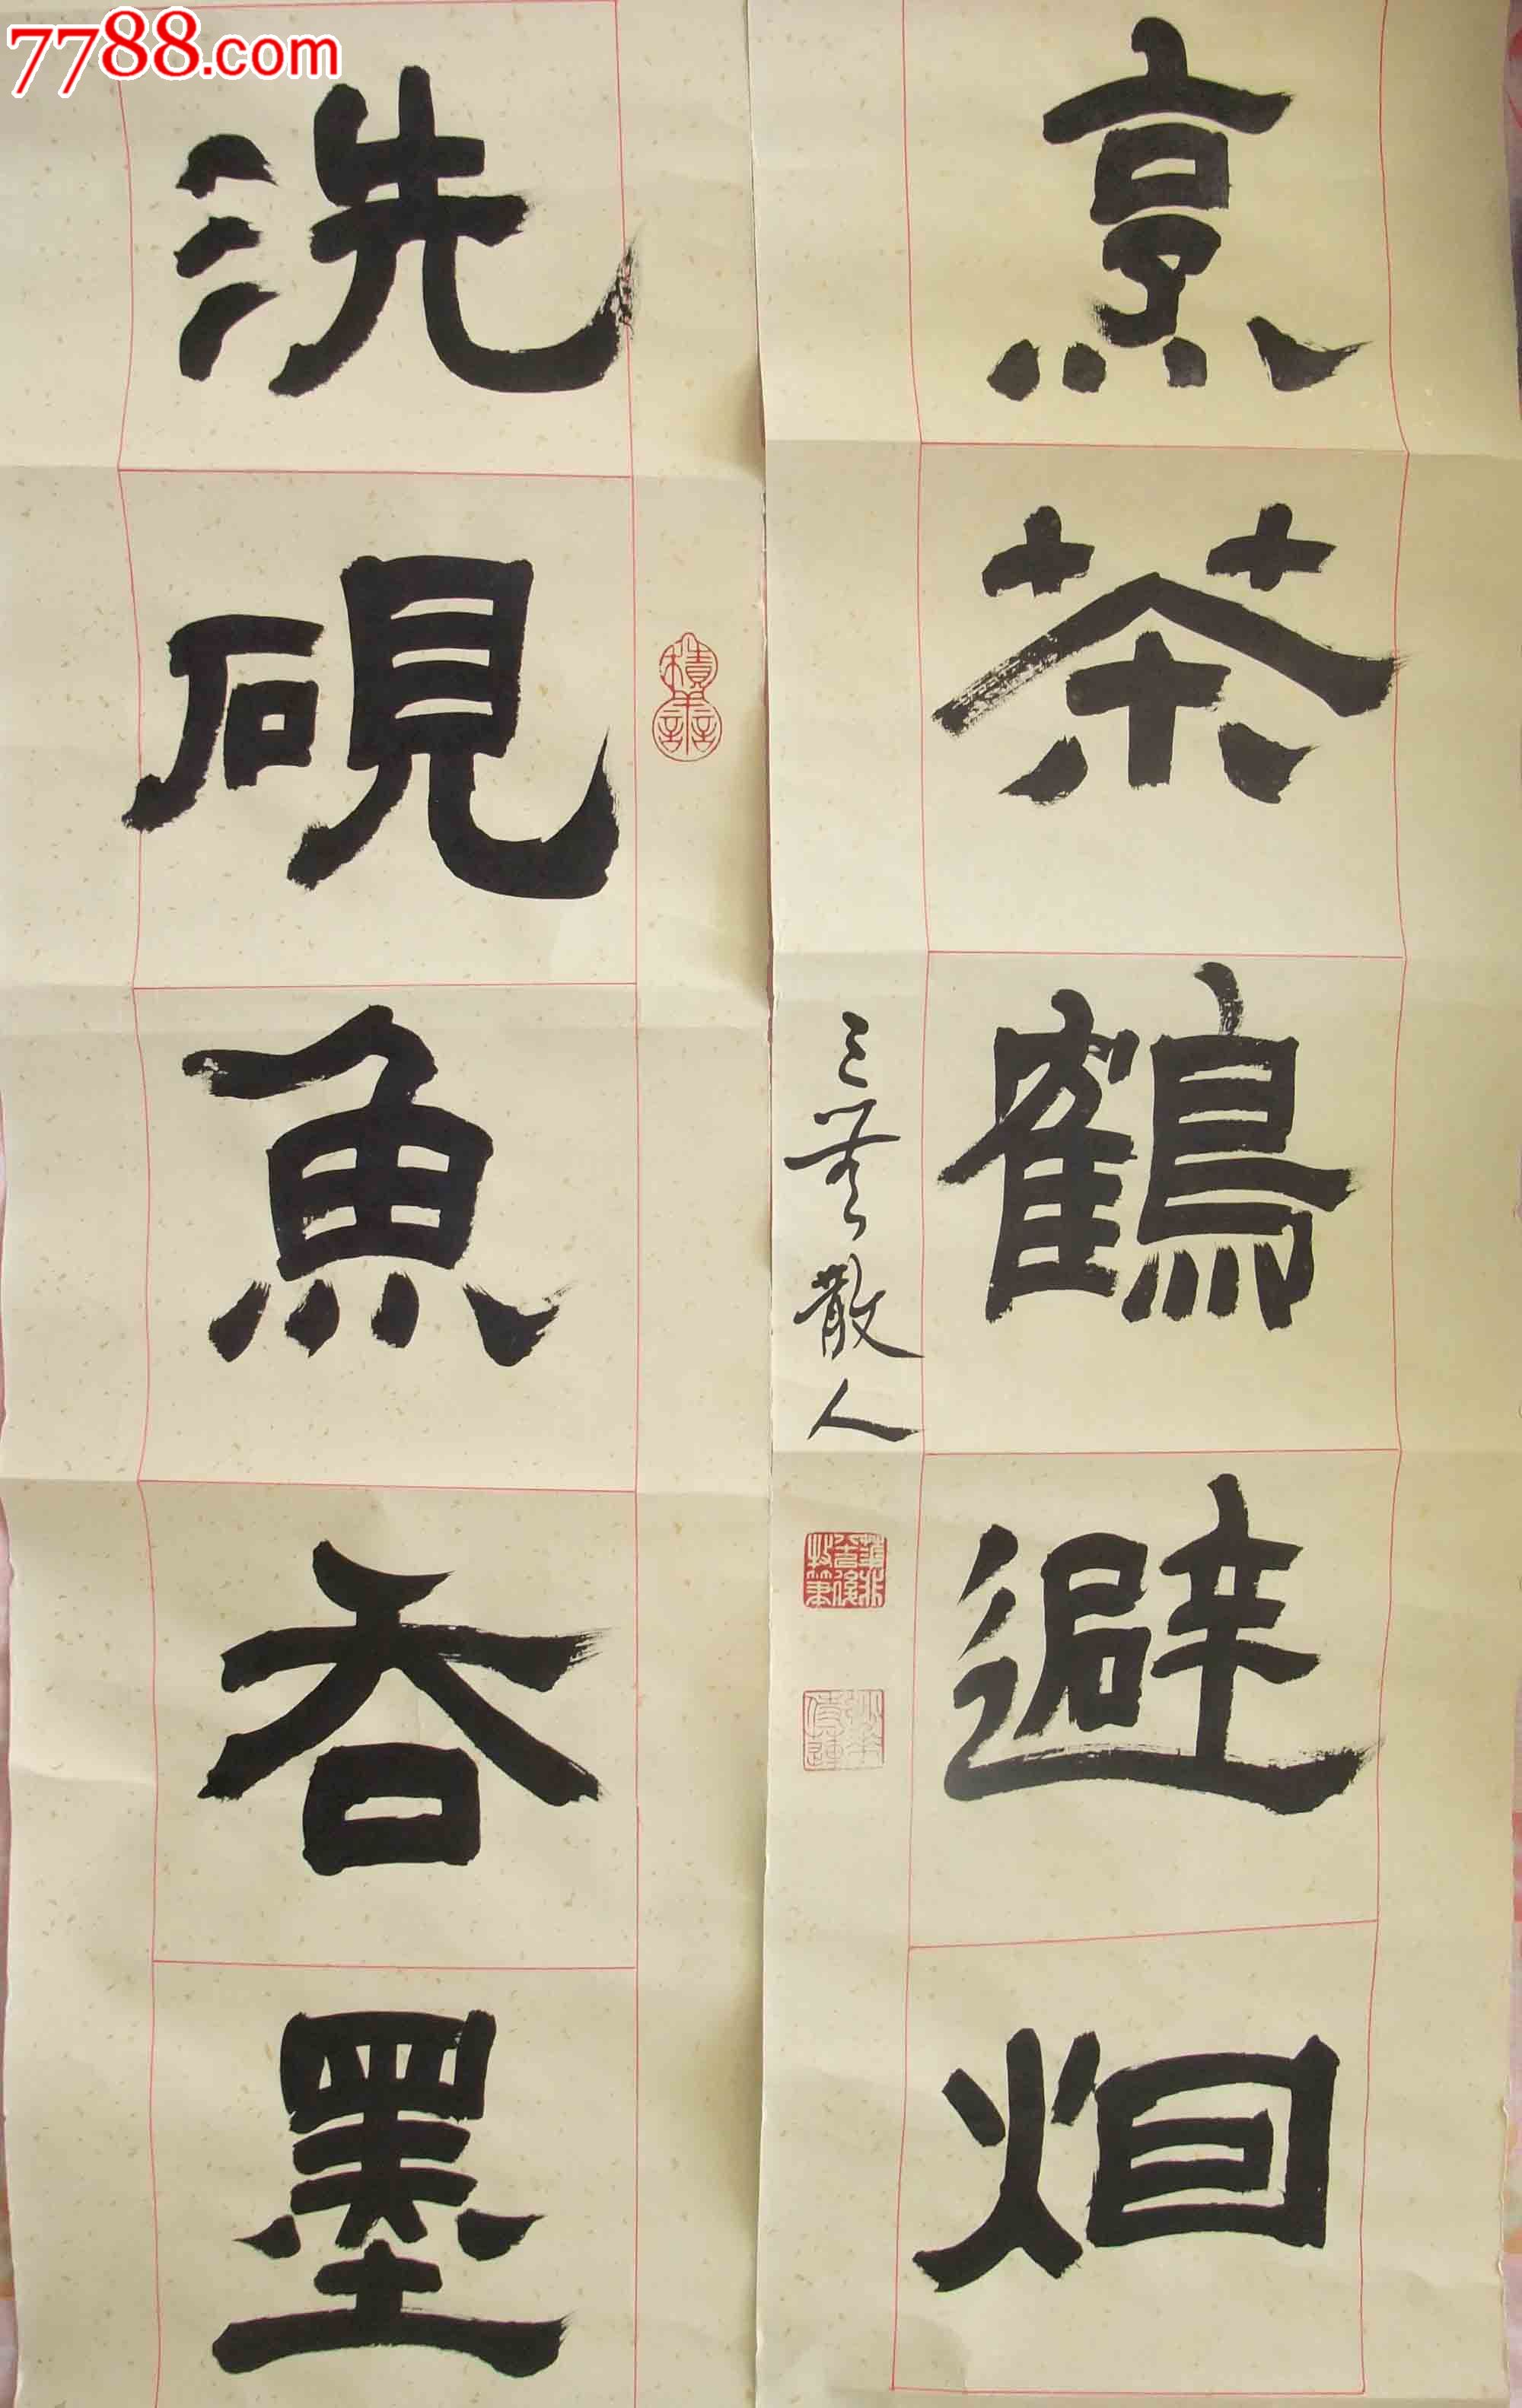 7788.com
洗硯魚吞墨
烹茶鶴避烟
三芝散人